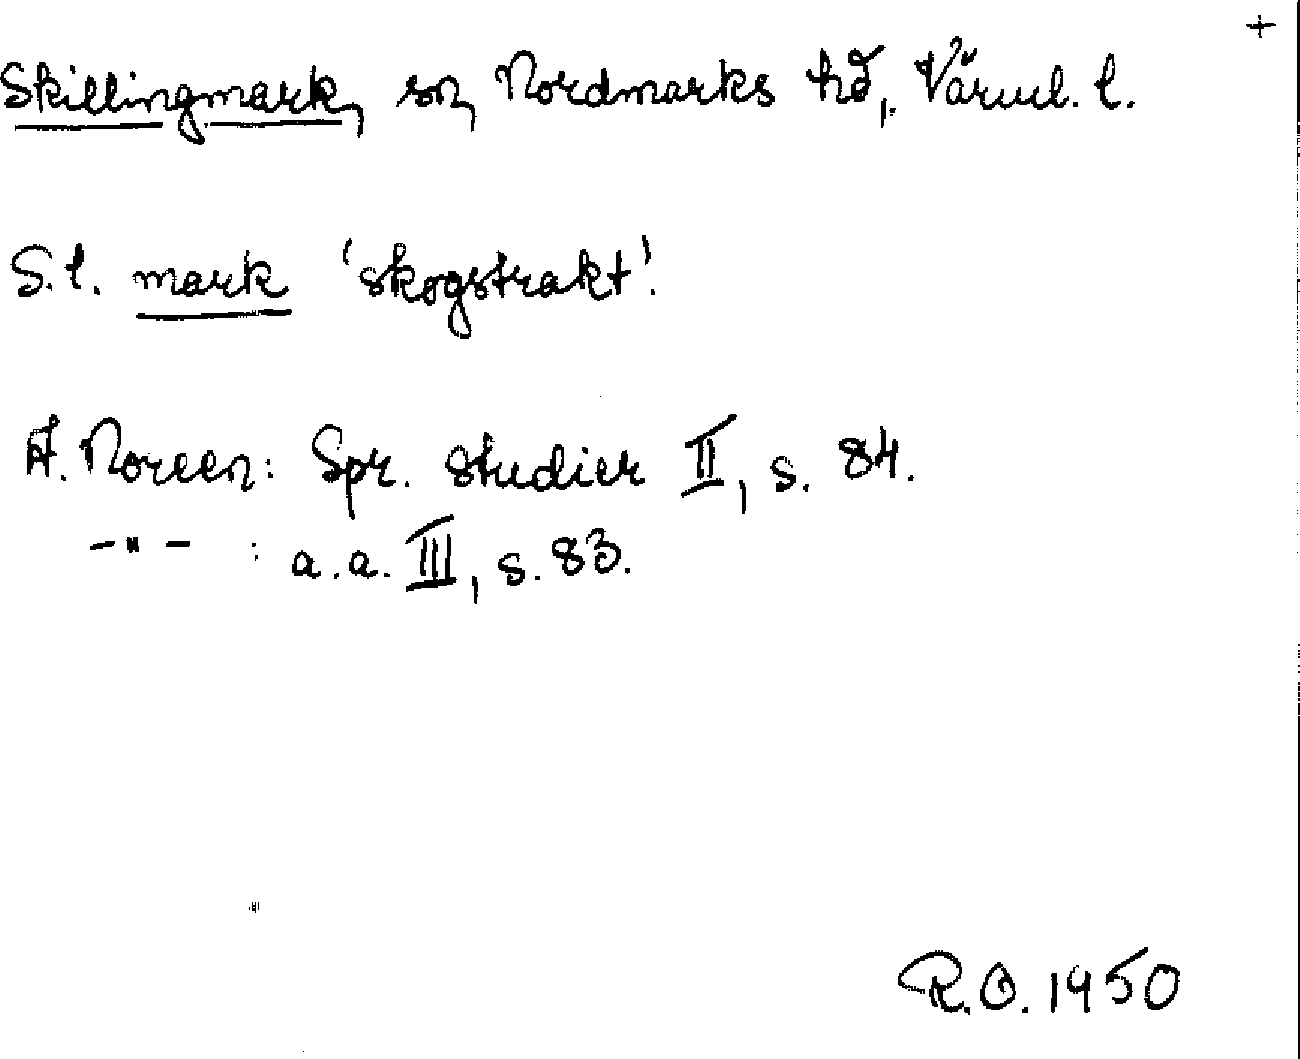 +
Skillingmark, sn, Nordmarks hd, Värml. l.
S.l. mark 'skogstrakt'.
A. Noreen: Spr. studier II, s. 84.
-"- : a.a. III, s. 83.
R.O. 1950